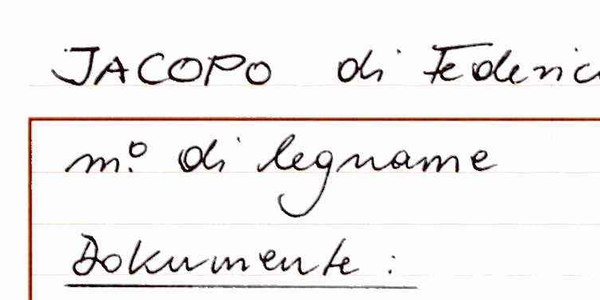 JACOPO di Federic
m.º di legname
Dokumente :